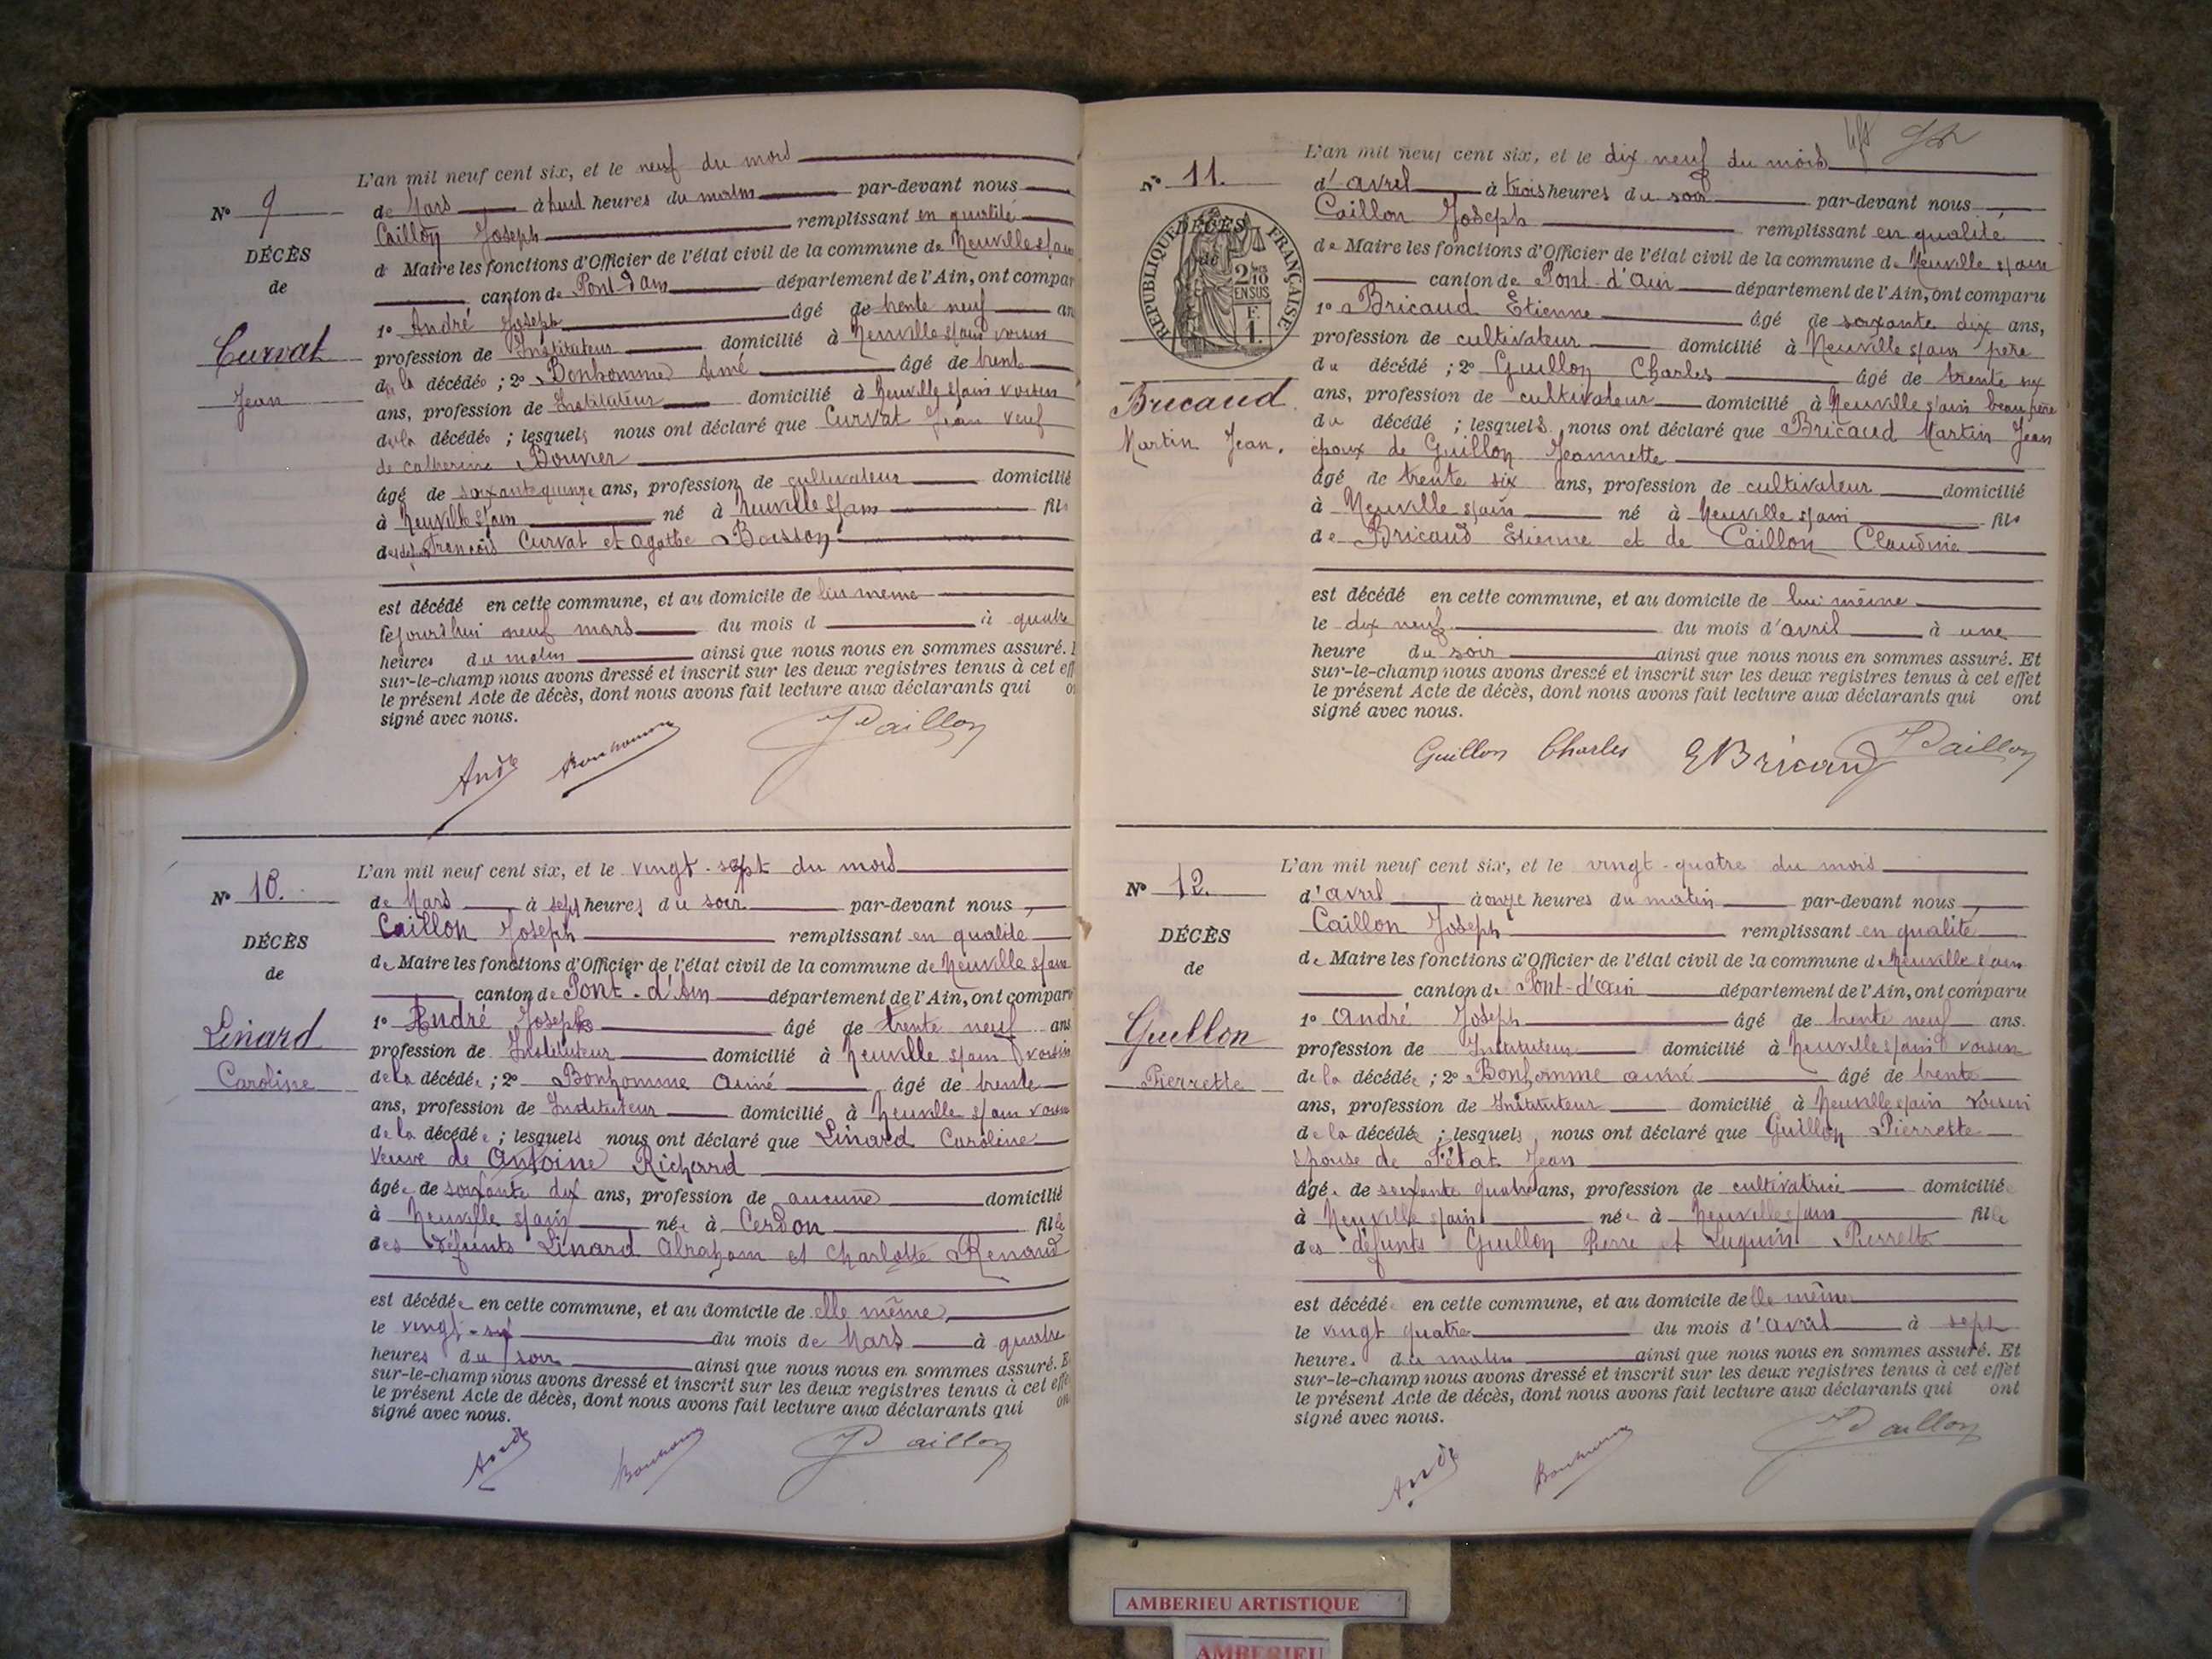 L'an mil neuf cent six, et le neuf du mois
N° 9
de Mars à huit heures du matin par-devant nous
Caillon Joseph remplissant en qualité
DÉCÈS
de Maire les fonctions d'Officier de l'état civil de la commune de Neuville s/ain
de
canton de Pont-d'ain département de l'Ain, ont compar
1° André Joseph âgé de trente neuf an
Curvat
profession de Instituteur domicilié à Neuville s/ain voisin
de la décédée ; 2° Bonhomme Aimé âgé de trente
Jean
ans, profession de Instituteur domicilié à Neuville s/ain voisin
de la décédée ; lesquels nous ont déclaré que Curvat Jean veuf
de Catherine Bouvier
âgé de soixante quinze ans, profession de cultivateur domicilié
à Neuville s/ain né à Neuville s/ain fils
François Curvat et Agathe Boisson
est décédé en cette commune, et au domicile de lui même
neuf mars du mois d à quatre
heures du matin ainsi que nous nous en sommes assuré.
sur-le-champ nous avons dressé et inscrit sur les deux registres tenus à cet eff
le présent Acte de décès, dont nous avons fait lecture aux déclarants qui on
signé avec nous.
André Bonhomme JCaillon
L'an mil neuf cent six, et le vingt-sept du mois
N° 10.
de Mars à sept heures du soir par-devant nous
Caillon Joseph remplissant en qualité
DÉCÈS
de Maire les fonctions d'Officier de l'état civil de la commune de Neuville s/ain
de
canton de Pont-d'Ain département de l'Ain, ont comparu
1° André Joseph âgé de trente neuf ans
Linard
profession de Instituteur domicilié à Neuville s/ain voisin
Caroline
de la décédée ; 2° Bonhomme Aimé âgé de trente
ans, profession de Instituteur domicilié à Neuville s/ain voisin
de la décédée ; lesquels nous ont déclaré que Linard Caroline
Veuve de Antoine Richard
âgée de soixante dix ans, profession de aucune domicilié
à Neuville s/ain née à Cerdon fille
des défunts Linard Abraham et Charlotte Renaud
est décédée en cette commune, et au domicile de elle même
le vingt-six du mois de Mars à quatre
heures du soir ainsi que nous nous en sommes assuré. E
sur-le-champ nous avons dressé et inscrit sur les deux registres tenus à cet effe
le présent Acte de décès, dont nous avons fait lecture aux déclarants qui on
signé avec nous.
André Bonhomme JCaillon
L'an mil neuf cent six, et le dix neuf du mois
N° 11.
d'avril à trois heures du soir par-devant nous
Caillon Joseph remplissant en qualité
DÉCÈS
de
RÉPUBLIQUE FRANÇAISE
2/10 EN SUS
F. 1.
de Maire les fonctions d'Officier de l'état civil de la commune de Neuville s/ain
canton de Pont-d'Ain département de l'Ain, ont comparu
1° Bricaud Etienne âgé de soixante dix ans,
profession de cultivateur domicilié à Neuville s/ain père
du décédé ; 2° Guillon Charles âgé de trente six
Bricaud
ans, profession de cultivateur domicilié à Neuville s/ain beau père
du décédé ; lesquels nous ont déclaré que Bricaud Martin Jean
Martin Jean.
époux de Guillon Jeannette
âgé de trente six ans, profession de cultivateur domicilié
à Neuville s/ain né à Neuville s/ain fils
de Bricaud Etienne et de Caillon Claudine
est décédé en cette commune, et au domicile de lui même
le dix neuf du mois d'avril à une
heure du soir ainsi que nous nous en sommes assuré. Et
sur-le-champ nous avons dressé et inscrit sur les deux registres tenus à cet effet
le présent Acte de décès, dont nous avons fait lecture aux déclarants qui ont
signé avec nous.
Guillon Charles EBricaud JCaillon
L'an mil neuf cent six, et le vingt-quatre du mois
N° 12.
d'avril à onze heures du matin par-devant nous
Caillon Joseph remplissant en qualité
DÉCÈS
de Maire les fonctions d'Officier de l'état civil de la commune de Neuville s/ain
de
canton de Pont-d'ain département de l'Ain, ont comparu
1° André Joseph âgé de trente neuf ans.
Guillon
profession de Instituteur domicilié à Neuville s/ain voisin
Pierrette
de la décédée ; 2° Bonhomme aimé âgé de trente
ans, profession de Instituteur domicilié à Neuville s/ain voisin
de la décédée ; lesquels nous ont déclaré que Guillon Pierrette
épouse de Fétat Jean
âgée de soixante quatre ans, profession de cultivatrice domicilié
à Neuville s/ain née à Neuville s/ain fille
des défunts Guillon Pierre et Luquin Pierrette
est décédée en cette commune, et au domicile de elle même
le vingt quatre du mois d'avril à sept
heure. du matin ainsi que nous nous en sommes assuré. Et
sur-le-champ nous avons dressé et inscrit sur les deux registres tenus à cet effet
le présent Acte de décès, dont nous avons fait lecture aux déclarants qui ont
signé avec nous.
André Bonhomme JCaillon
AMBERIEU ARTISTIQUE
AMBERIEU